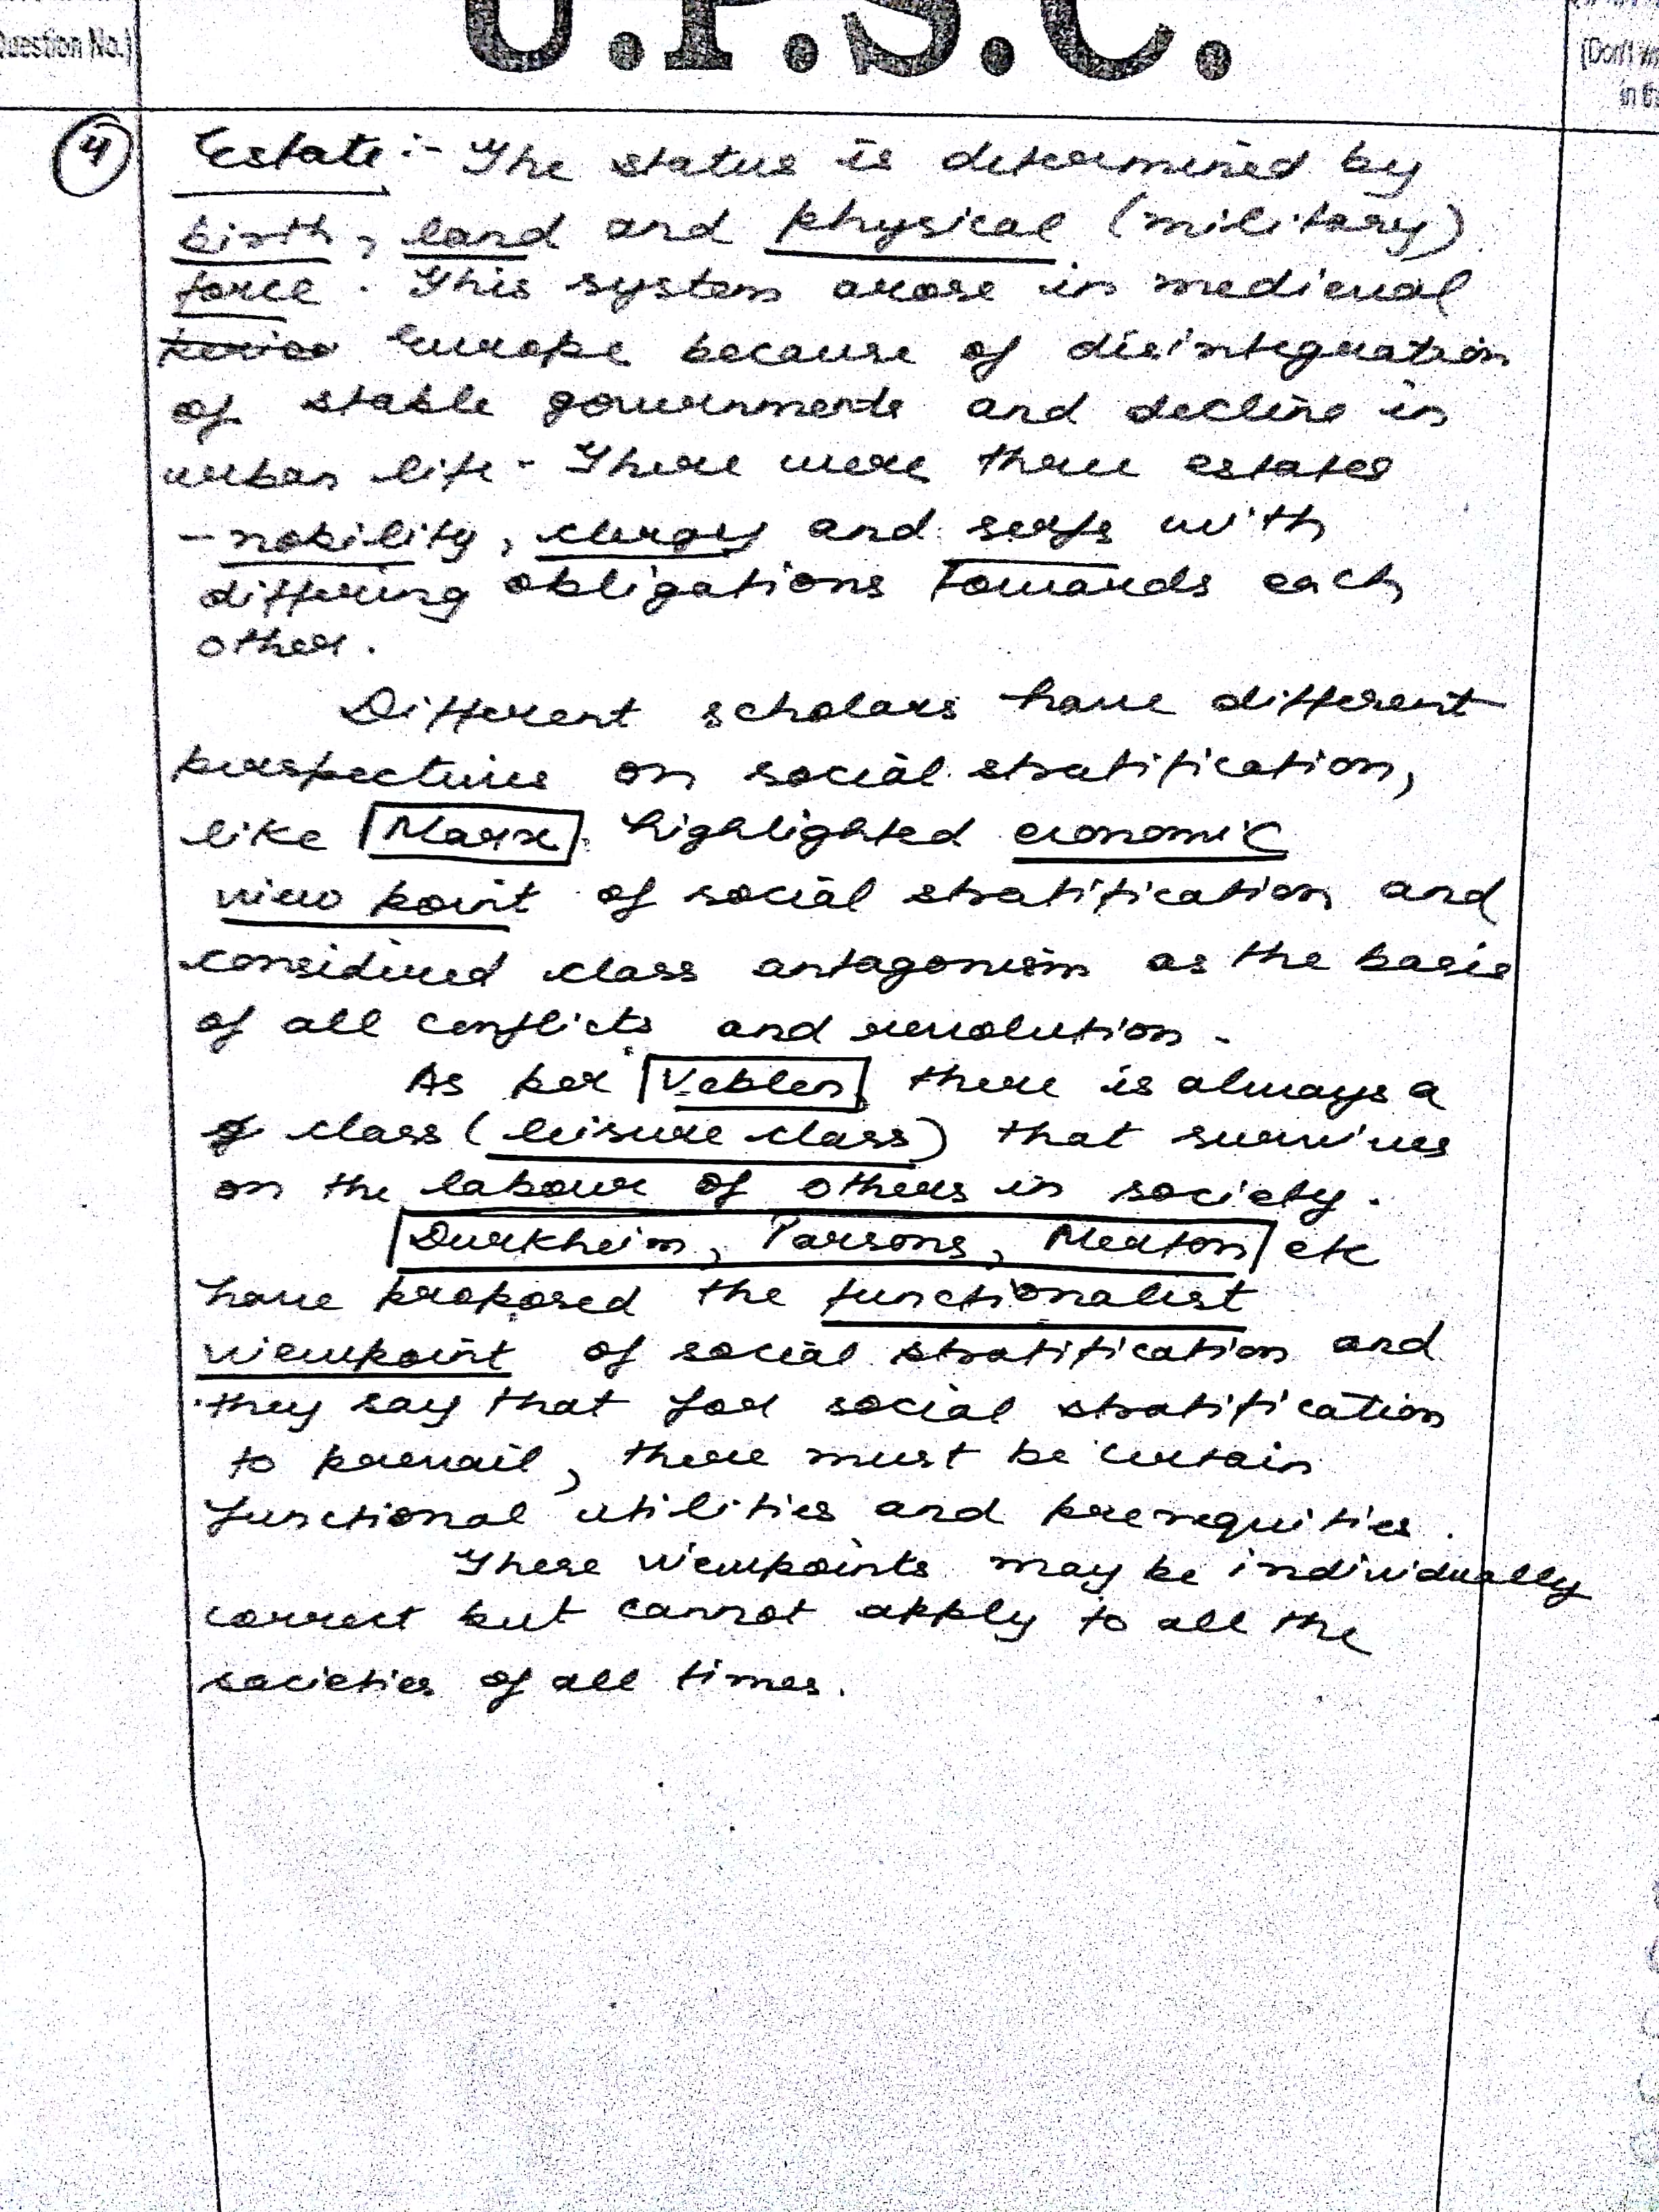 U.P.S.C.
Question No.)
(Don't
in
4 Estate :- The status is determined by
birth, land and physical (military)
force. This system arose in medieval
Europe because of disintegration
of stable governments and decline in
urban life - There were three estates
- nobility, clergy and serfs with
differing obligations towards each
other.
Different scholars have different
perspectives on social stratification,
like Marx highlighted economic
view point of social stratification and
considered class antagonism as the basis
of all conflicts and revolution.
As per Veblen there is always a
class (leisure class) that survives
on the labour of others in society.
Durkheim, Parsons, Merton etc
have proposed the functionalist
viewpoint of social stratification and
they say that for social stratification
to prevail, there must be certain
functional utilities and prerequities.
These viewpoints may be individually
correct but cannot apply to all the
societies of all times.